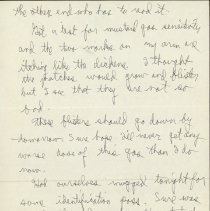 the other end who has to read it.
Got a test for mustard gas sensitivity
and the two marks on my arm are
itching like the dickens. I thought
the patches would grow and blister
but I see that they are not so
bad.
These blisters should go down by
tomorrow. Sure hope I'll never get any
worse dose of this gas than I do
now.
Got ourselves mugged tonight for
some identification pass. Sure was